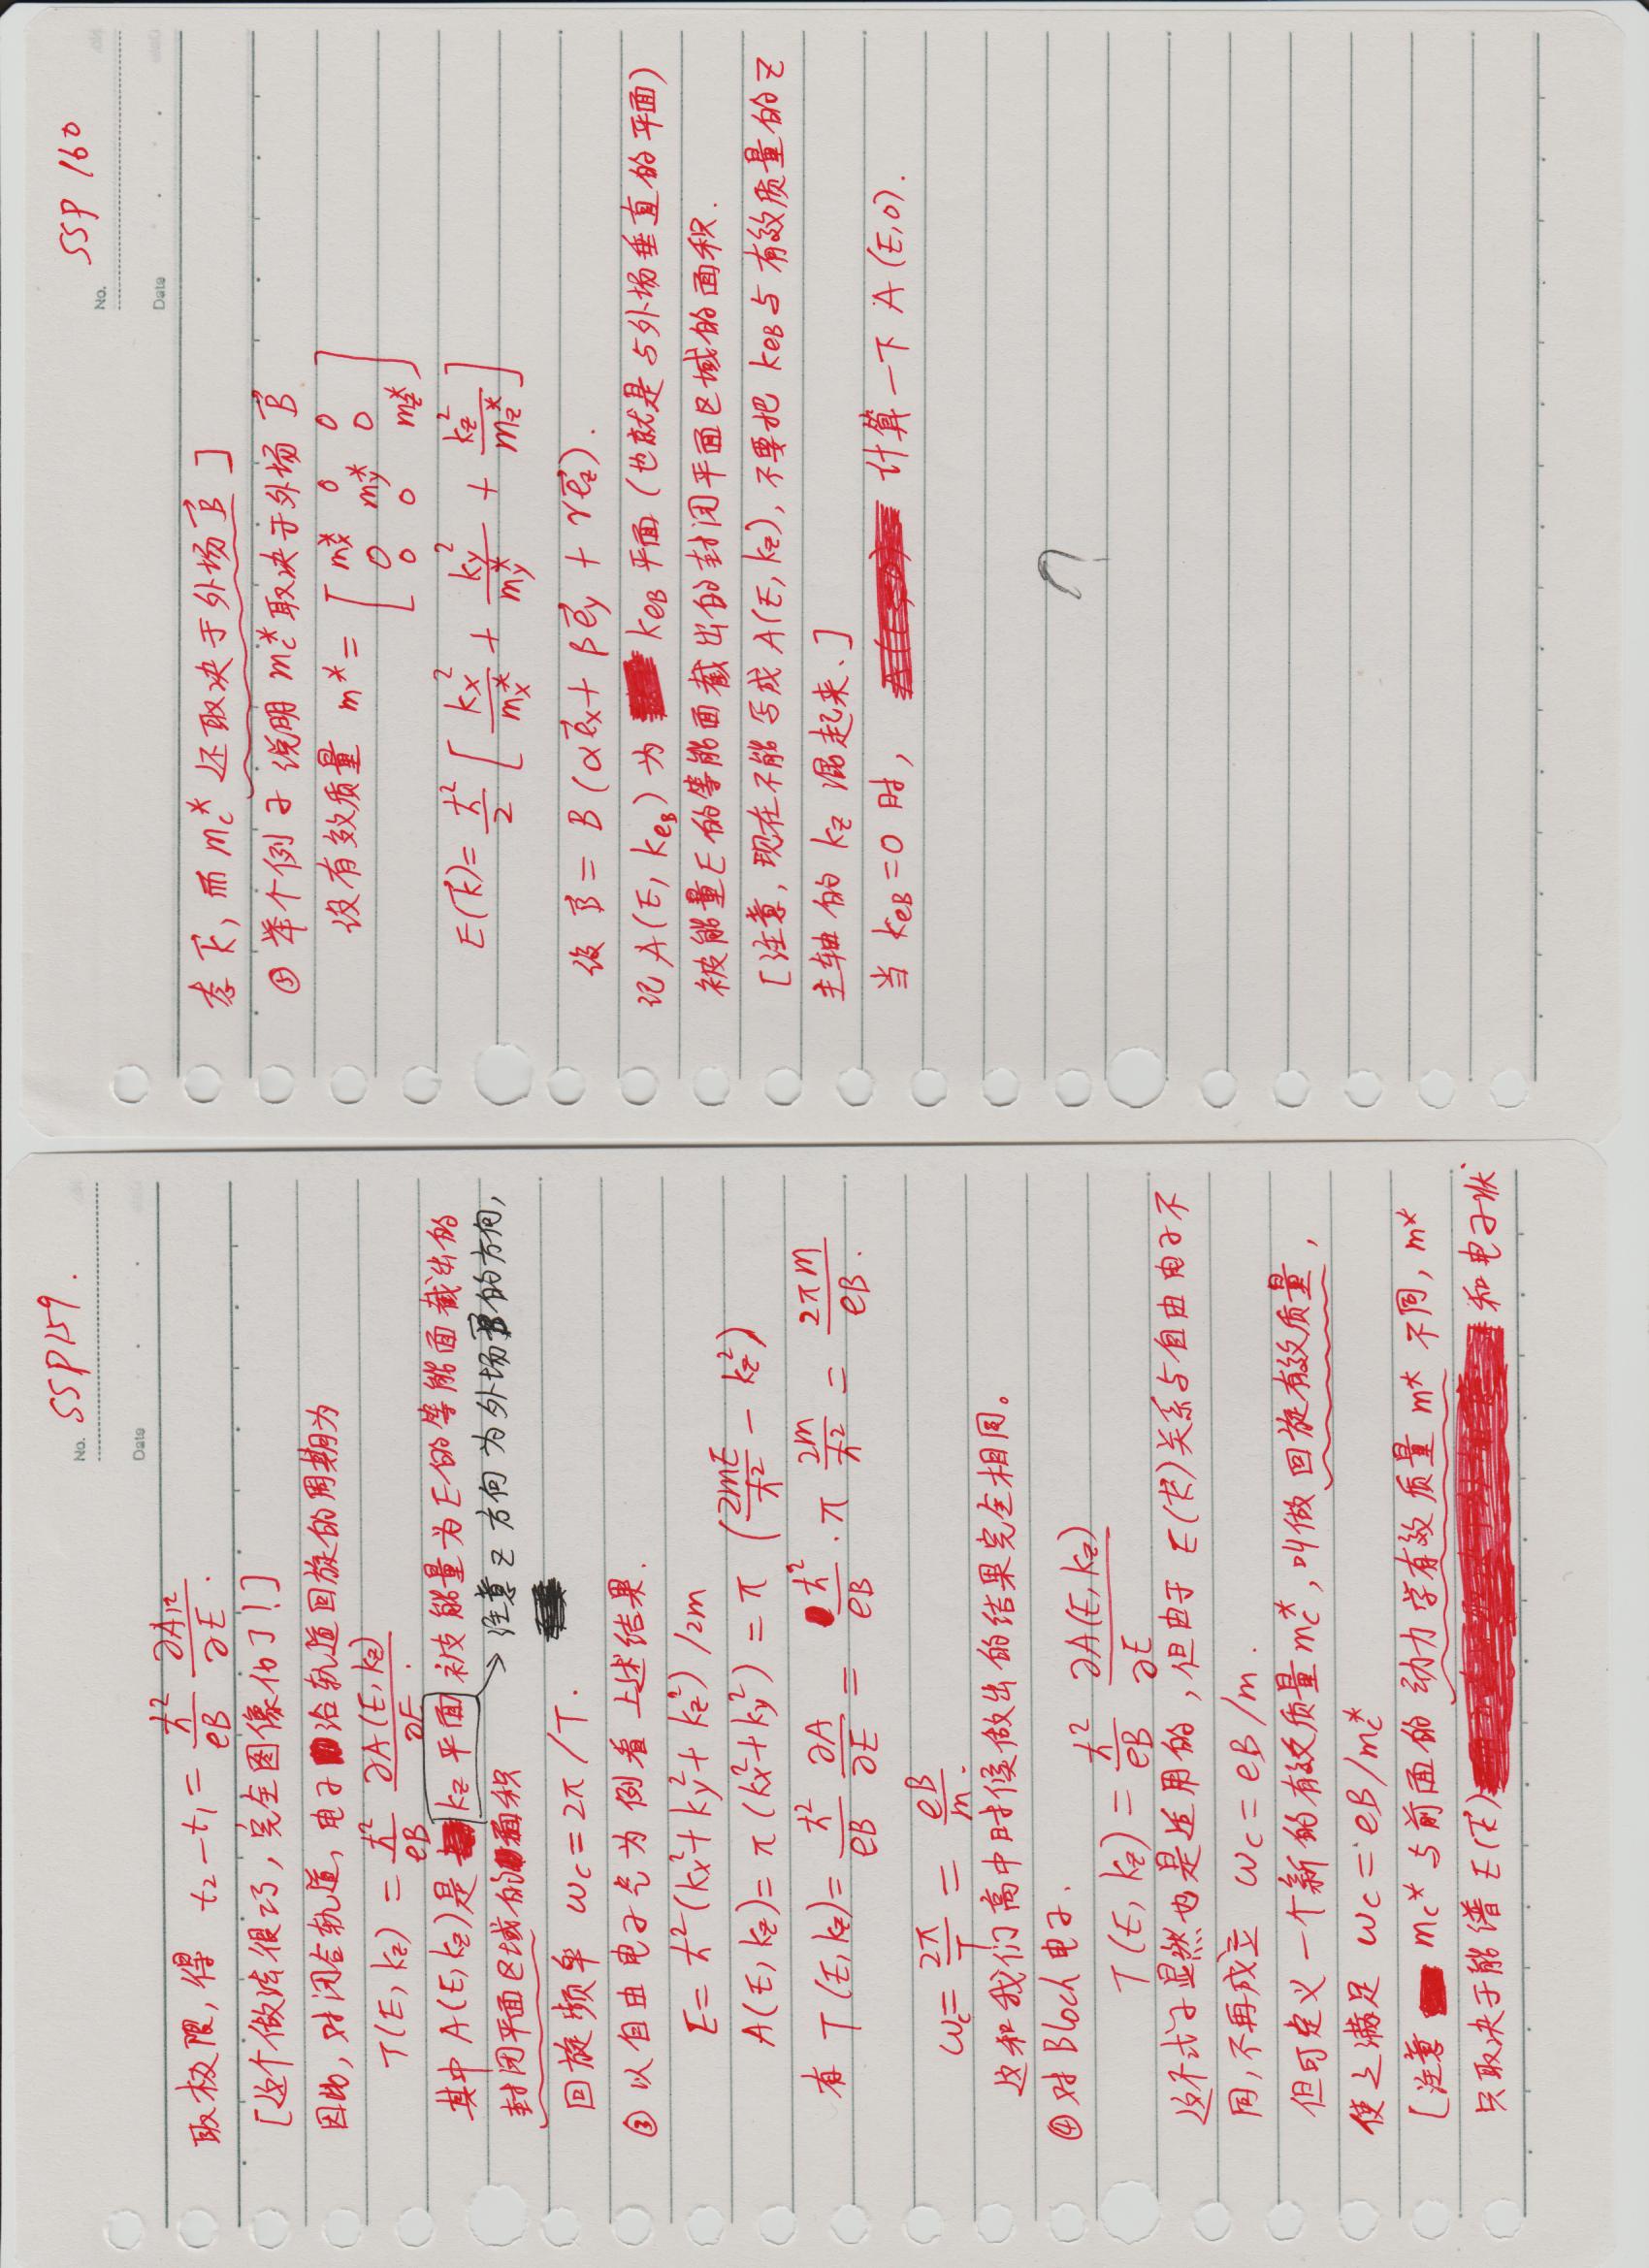 No. SSP159.
Date
取极限, 得 t₂-t₁ = ħ²/eB ∂A₁₂/∂E.
[这个做法很巧, 完全图像化了!]
因此, 对闭合轨道, 电子沿轨道回旋的周期为
T(E, kz) = ħ²/eB ∂A(E, kz)/∂E.
其中 A(E, kz) 是 kz 平面 被能量为E的等能面截出的
封闭平面区域的面积
→ 注意 z 方向为外场 B⃗ 的方向,
回旋频率 ωc = 2π/T.
③ 以自由电子气为例看上述结果.
E = ħ²(kx²+ky²+kz²)/2m
A(E, kz) = π(kx²+ky²) = π (2mE/ħ² - kz²)
有 T(E, kz) = ħ²/eB ∂A/∂E = ħ²/eB · π 2m/ħ² = 2πm/eB.
ωc = 2π/T = eB/m.
这和我们高中时候做出的结果完全相同。
④ 对Bloch电子.
T(E, kz) = ħ²/eB ∂A(E, kz)/∂E
这个式子显然也是适用的, 但由于 E(k⃗) 关系与自由电子不
同, 不再成立 ωc = eB/m.
但可定义一个新的有效质量 mc*, 叫做 回旋有效质量,
使之满足 ωc = eB/mc*
[注意 mc* 与前面的 动力学有效质量 m* 不同, m*
只取决于能谱 E(k⃗) 和电子状
No. SSP 160
Date
态 k⃗, 而 mc* 还取决于外场 B⃗ ]
⑤ 举个例子 说明 mc* 取决于外场 B⃗
设有效质量 m* = [ mx* 0 0
0 my* 0
0 0 mz* ]
E(k⃗) = ħ²/2 [ kx²/mx* + ky²/my* + kz²/mz* ]
设 B⃗ = B(αe⃗x + βe⃗y + γe⃗z).
记 A(E, keB) 为 keB 平面 (也就是与外场垂直的平面)
被能量E的等能面截出的封闭平面区域的面积.
[注意, 现在不能写成 A(E, kz), 不要把 keB 与有效质量的 z
主轴的 kz 混起来.]
当 keB = 0 时, 计算一下 A(E, 0).
?